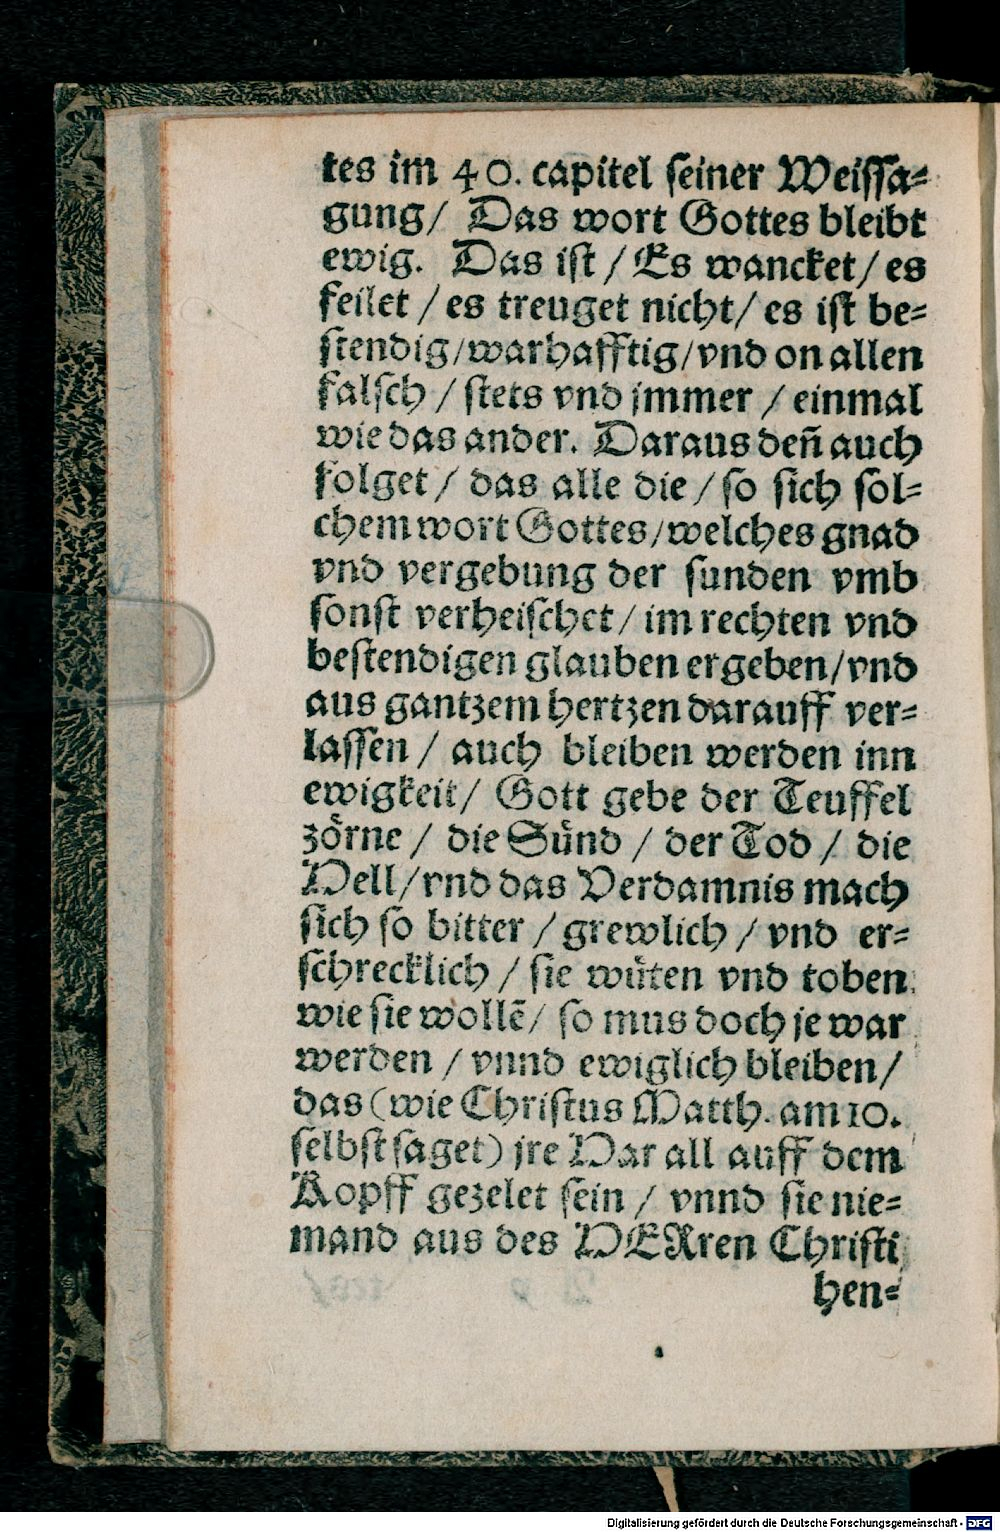 tes im 40. capitel seiner Weissa-
gung/ Das wort Gottes bleibt
ewig. Das ist / Es wancket/ es
feilet / es treuget nicht/ es ist be-
stendig/warhafftig/vnd on allen
falsch / stets vnd jmmer / einmal
wie das ander. Daraus den̄ auch
folget / das alle die / so sich sol-
chem wort Gottes/welches gnad
vnd vergebung der sunden vmb
sonst verheischet/ im rechten vnd
bestendigen glauben ergeben/vnd
aus gantzem hertzen darauff ver-
lassen / auch bleiben werden inn
ewigkeit/ Gott gebe der Teuffel
zörne / die Sünd / der Tod / die
Hell/vnd das Verdamnis mach
sich so bitter / grewlich / vnd er-
schrecklich / sie wüten vnd toben
wie sie wollē/ so mus doch je war
werden / vnnd ewiglich bleiben/
das (wie Christus Matth. am 10.
selbst saget) jre Har all auff dem
Kopff gezelet sein / vnnd sie nie-
mand aus des HERren Christi
hen-
Digitalisierung gefördert durch die Deutsche Forschungsgemeinschaft - DFG